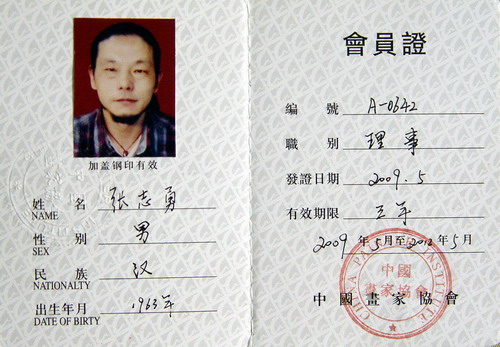 加盖钢印有效
姓 名 张志勇
NAME
性 别 男
SEX
民 族 汉
NATIONALTY
出生年月 1963年
DATE OF BIRTY
會員證
编 號 A-0642
職 别 理事
發證日期 2009.5
有效期限 三年
2009年5月至2012年5月
中國畫家協會
中國
畫家協會